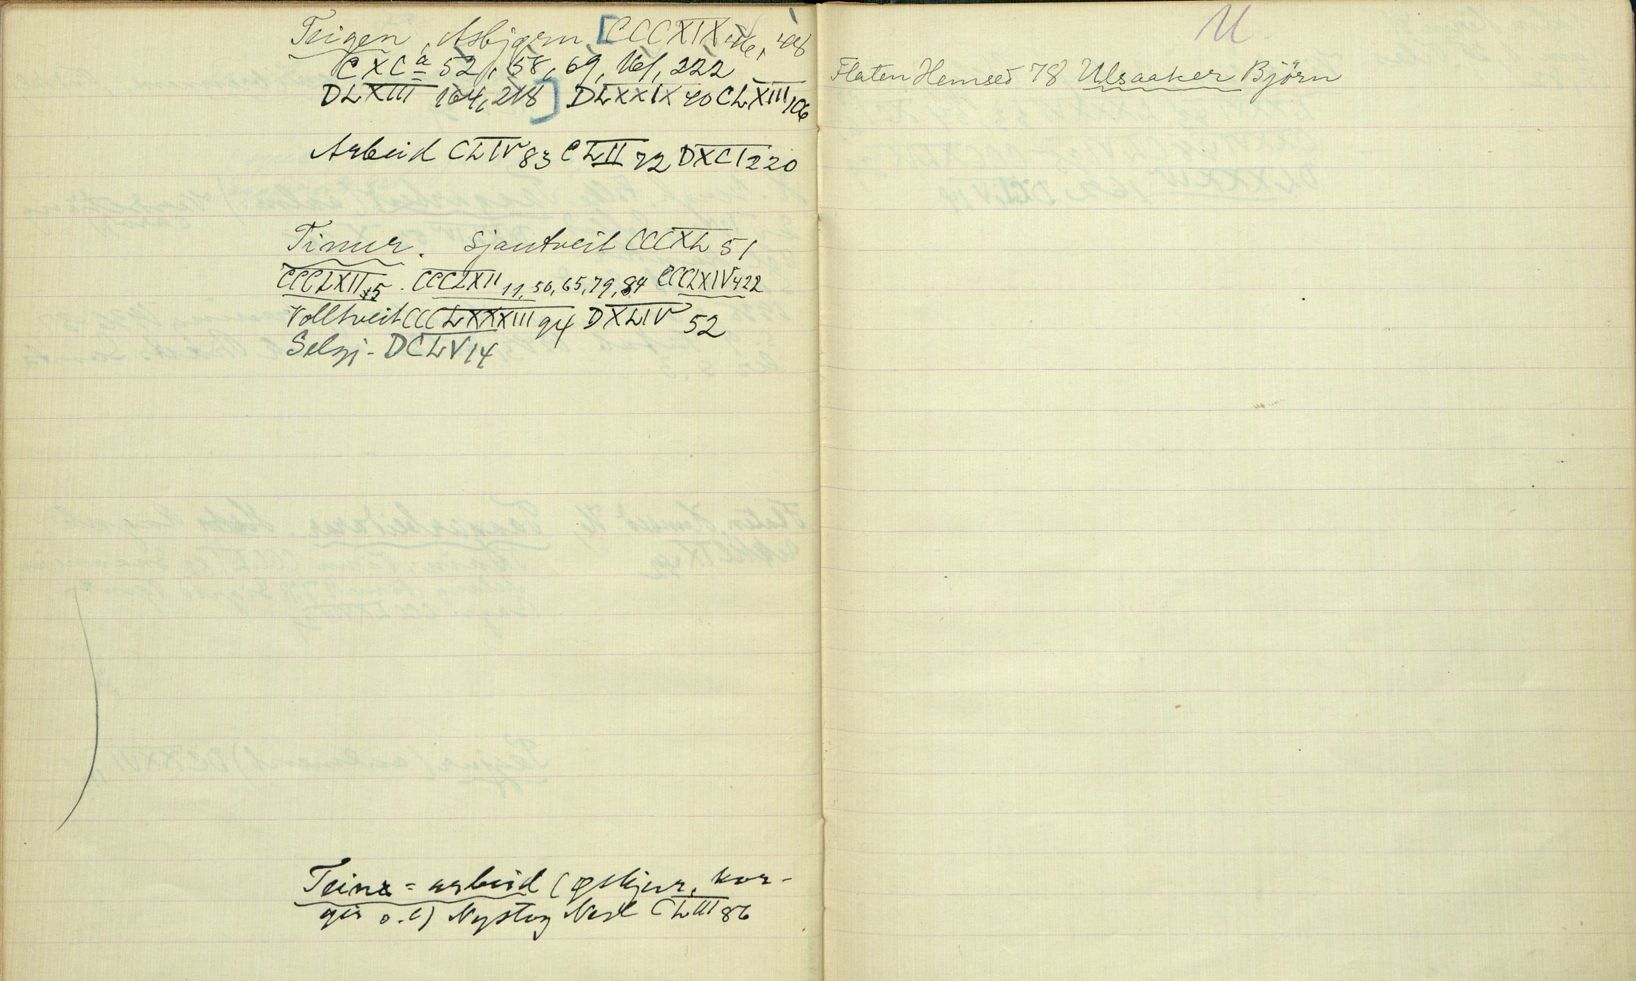 Teigen, Asbjørn, [CCCXIX 46, 48
CXCa 52, 58, 69, 161, 222
DLXIII 164, 218] DLXXIX 40 CLXIII 106
Arbeid CLIV 83 CLII 72 DXCI 220
Timer. Sjautveit CCCXL 51
CCCLXII 15. CCCLXII 11, 50, 65, 79, 84 CCCLXIV 422
Volltveit CCCLXXXIII 94 DXLIV 52
Selgj- DCLV 14
Teine=arbeid (øskjer, kor-
gir o.l) Nystog Nesl CLIII 86
U.
Flaten Hemsed 78 Ulsaaker Björn